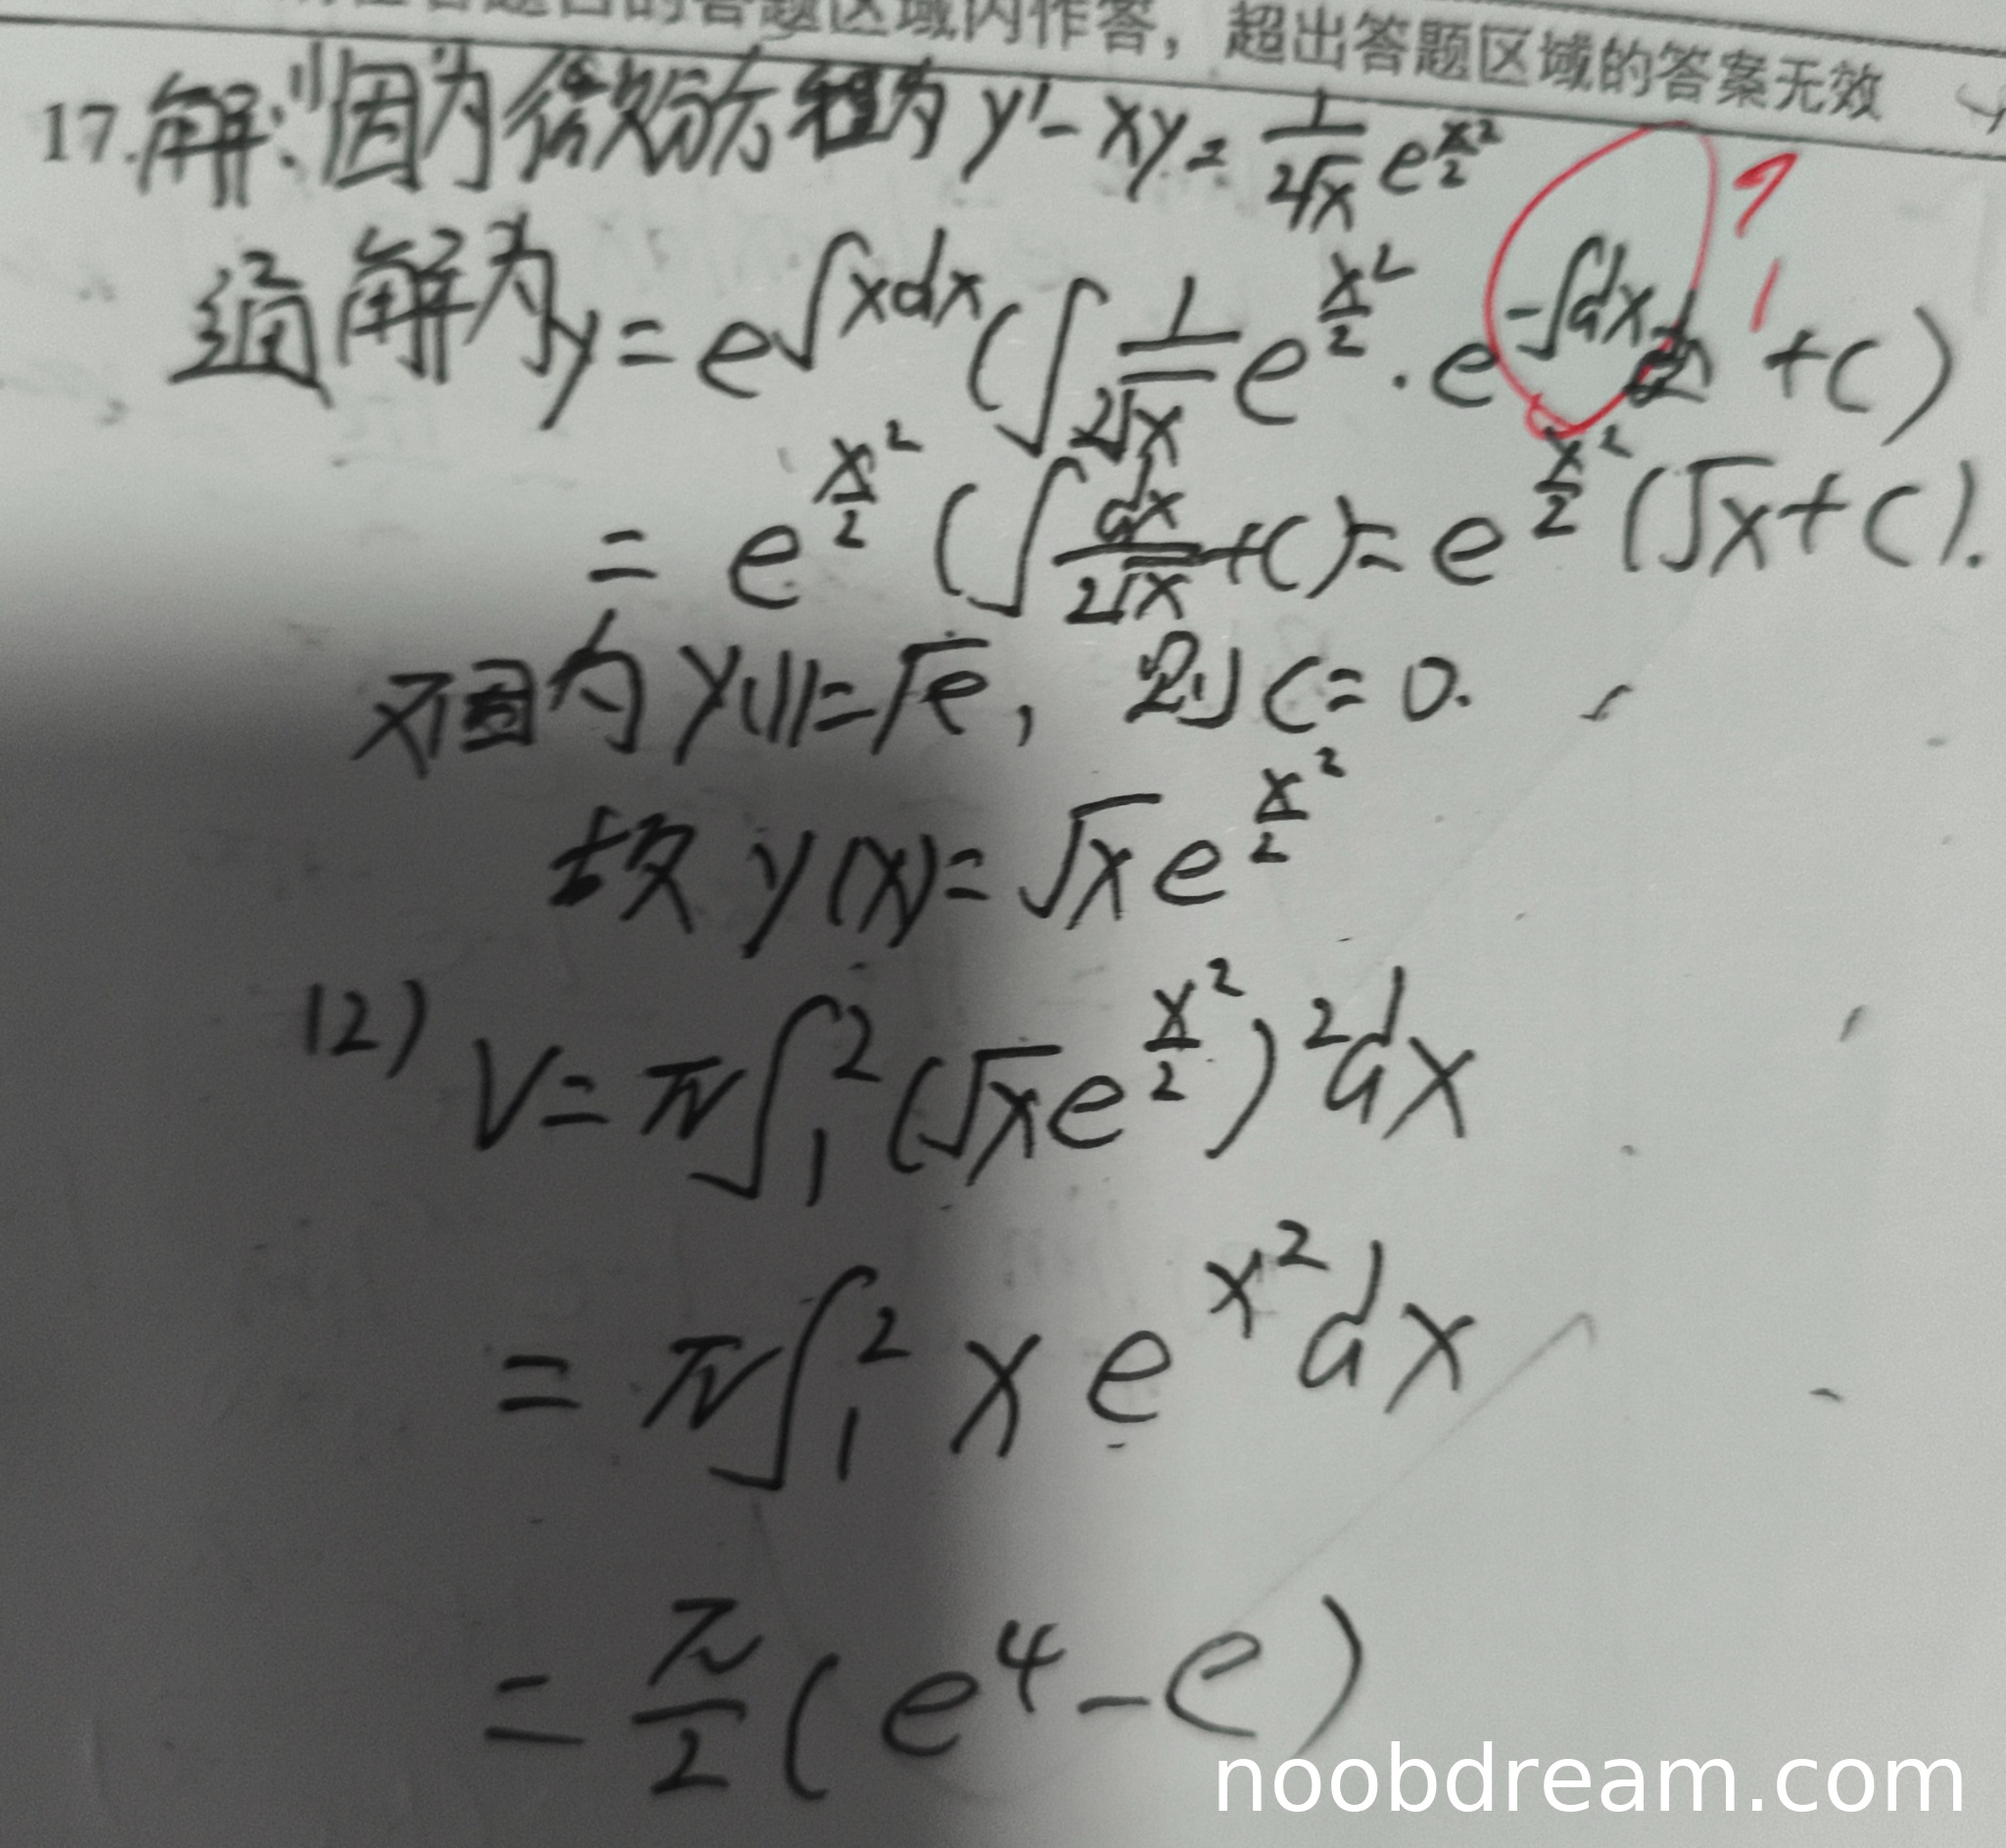 答题区域内作答，超出答题区域的答案无效
17.解:(1)因为微分方程为 y'-xy=1/(2√x) e^(x²/2)
通解为 y=e^(∫xdx)(∫1/(2√x) e^(x²/2)·e^(-∫dx) +C)
=e^(x²/2)(∫dx/(2√x)+C)=e^(x²/2)(√x+C).
又因为 y(1)=√e, 则 C=0.
故 y(x)=√x e^(x²/2)
(2) V=π∫₁²(√x e^(x²/2))²dx
=π∫₁² x e^(x²)dx
=π/2(e⁴-e)
noobdream.com